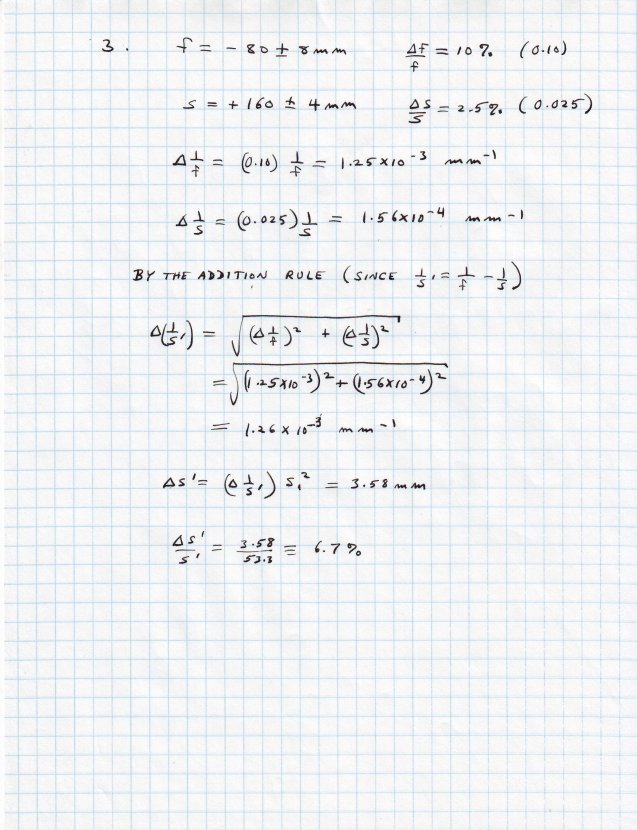 3. f = - 80 ± 8 mm Δf/f = 10% (0.10)
s = + 160 ± 4 mm Δs/s = 2.5% (0.025)
Δ 1/f = (0.10) 1/f = 1.25 x 10^-3 mm^-1
Δ 1/s = (0.025) 1/s = 1.56 x 10^-4 mm^-1
BY THE ADDITION RULE (SINCE 1/s' = 1/f - 1/s)
Δ(1/s') = √((Δ 1/f)² + (Δ 1/s)²)
= √((1.25 x 10^-3)² + (1.56 x 10^-4)²)
= 1.26 x 10^-3 mm^-1
Δs' = (Δ 1/s') s'² = 3.58 mm
Δs'/s' = 3.58/53.3 = 6.7%